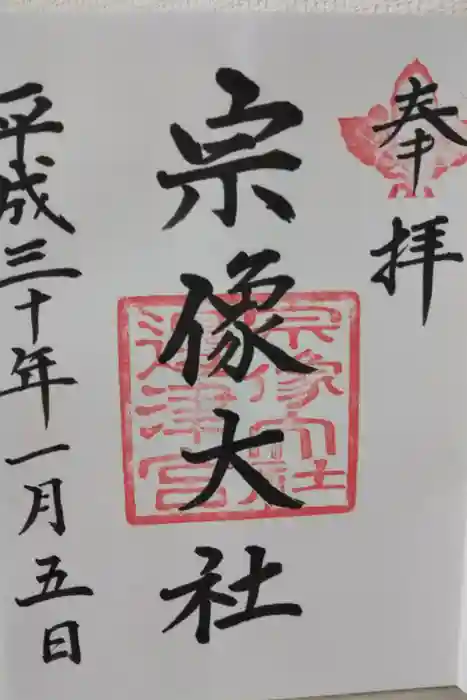 奉拝
宗像大社
宗像大社
邊津宮
平成三十年一月五日